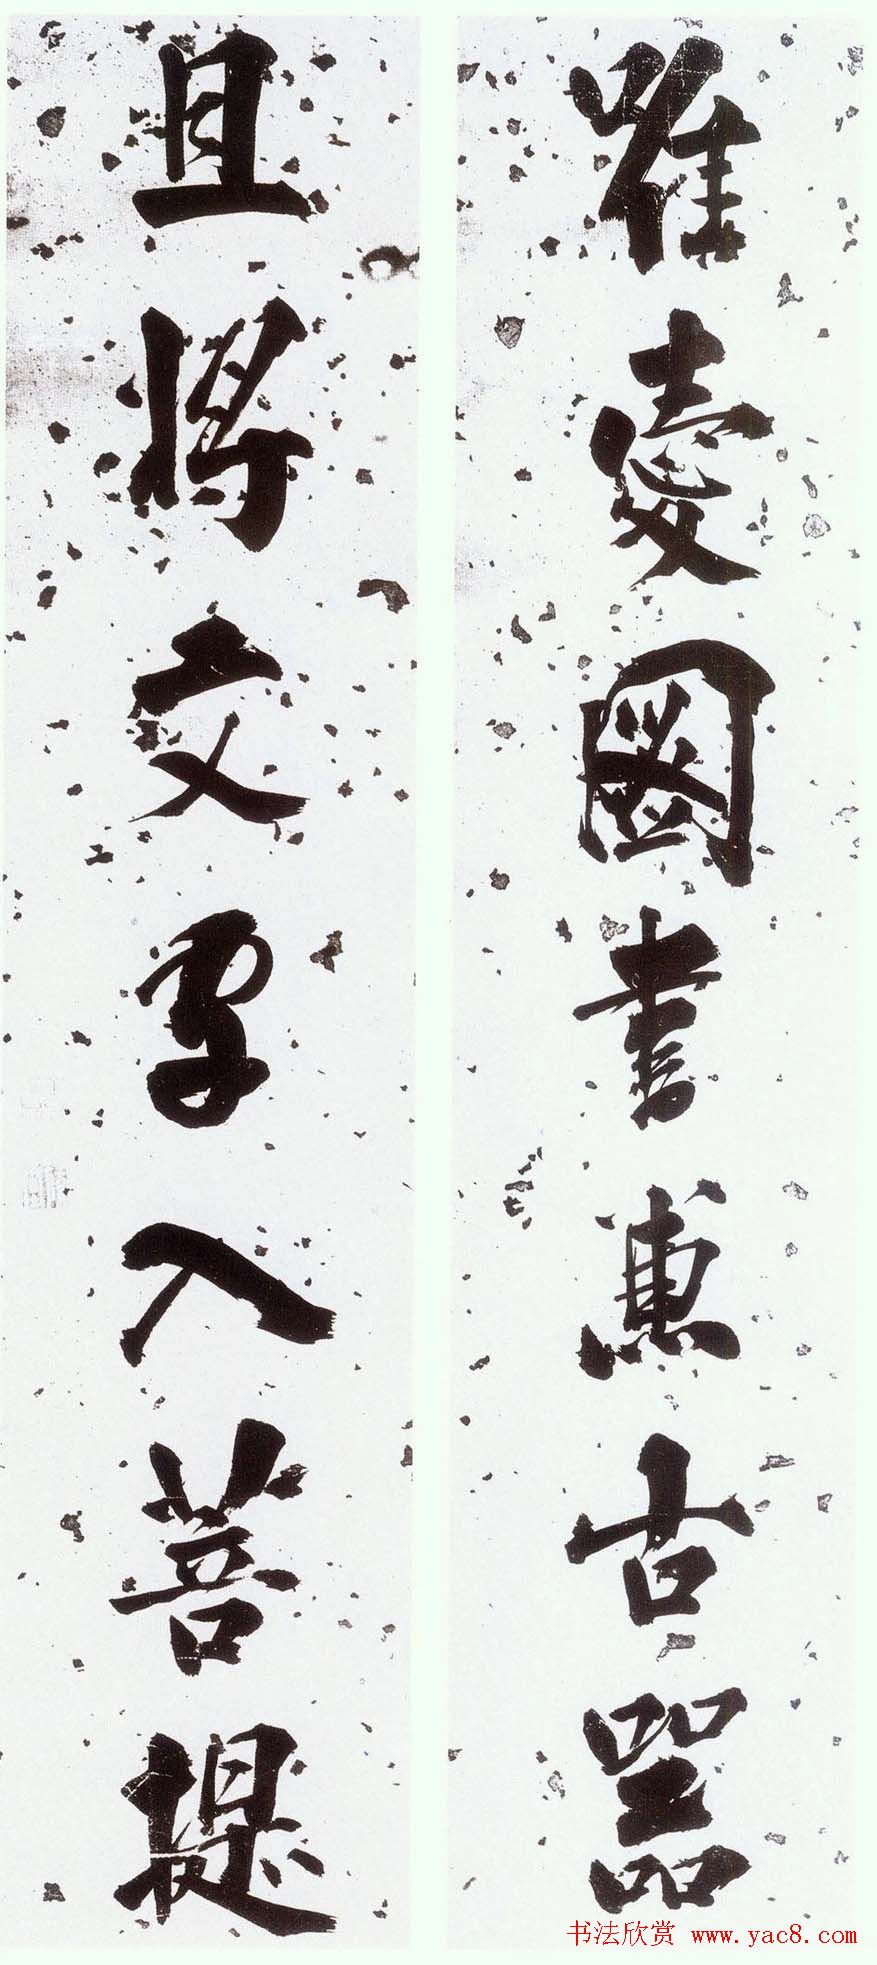 唯愛圖書兼古器
且將文字入菩提
书法欣赏 www.yac8.com